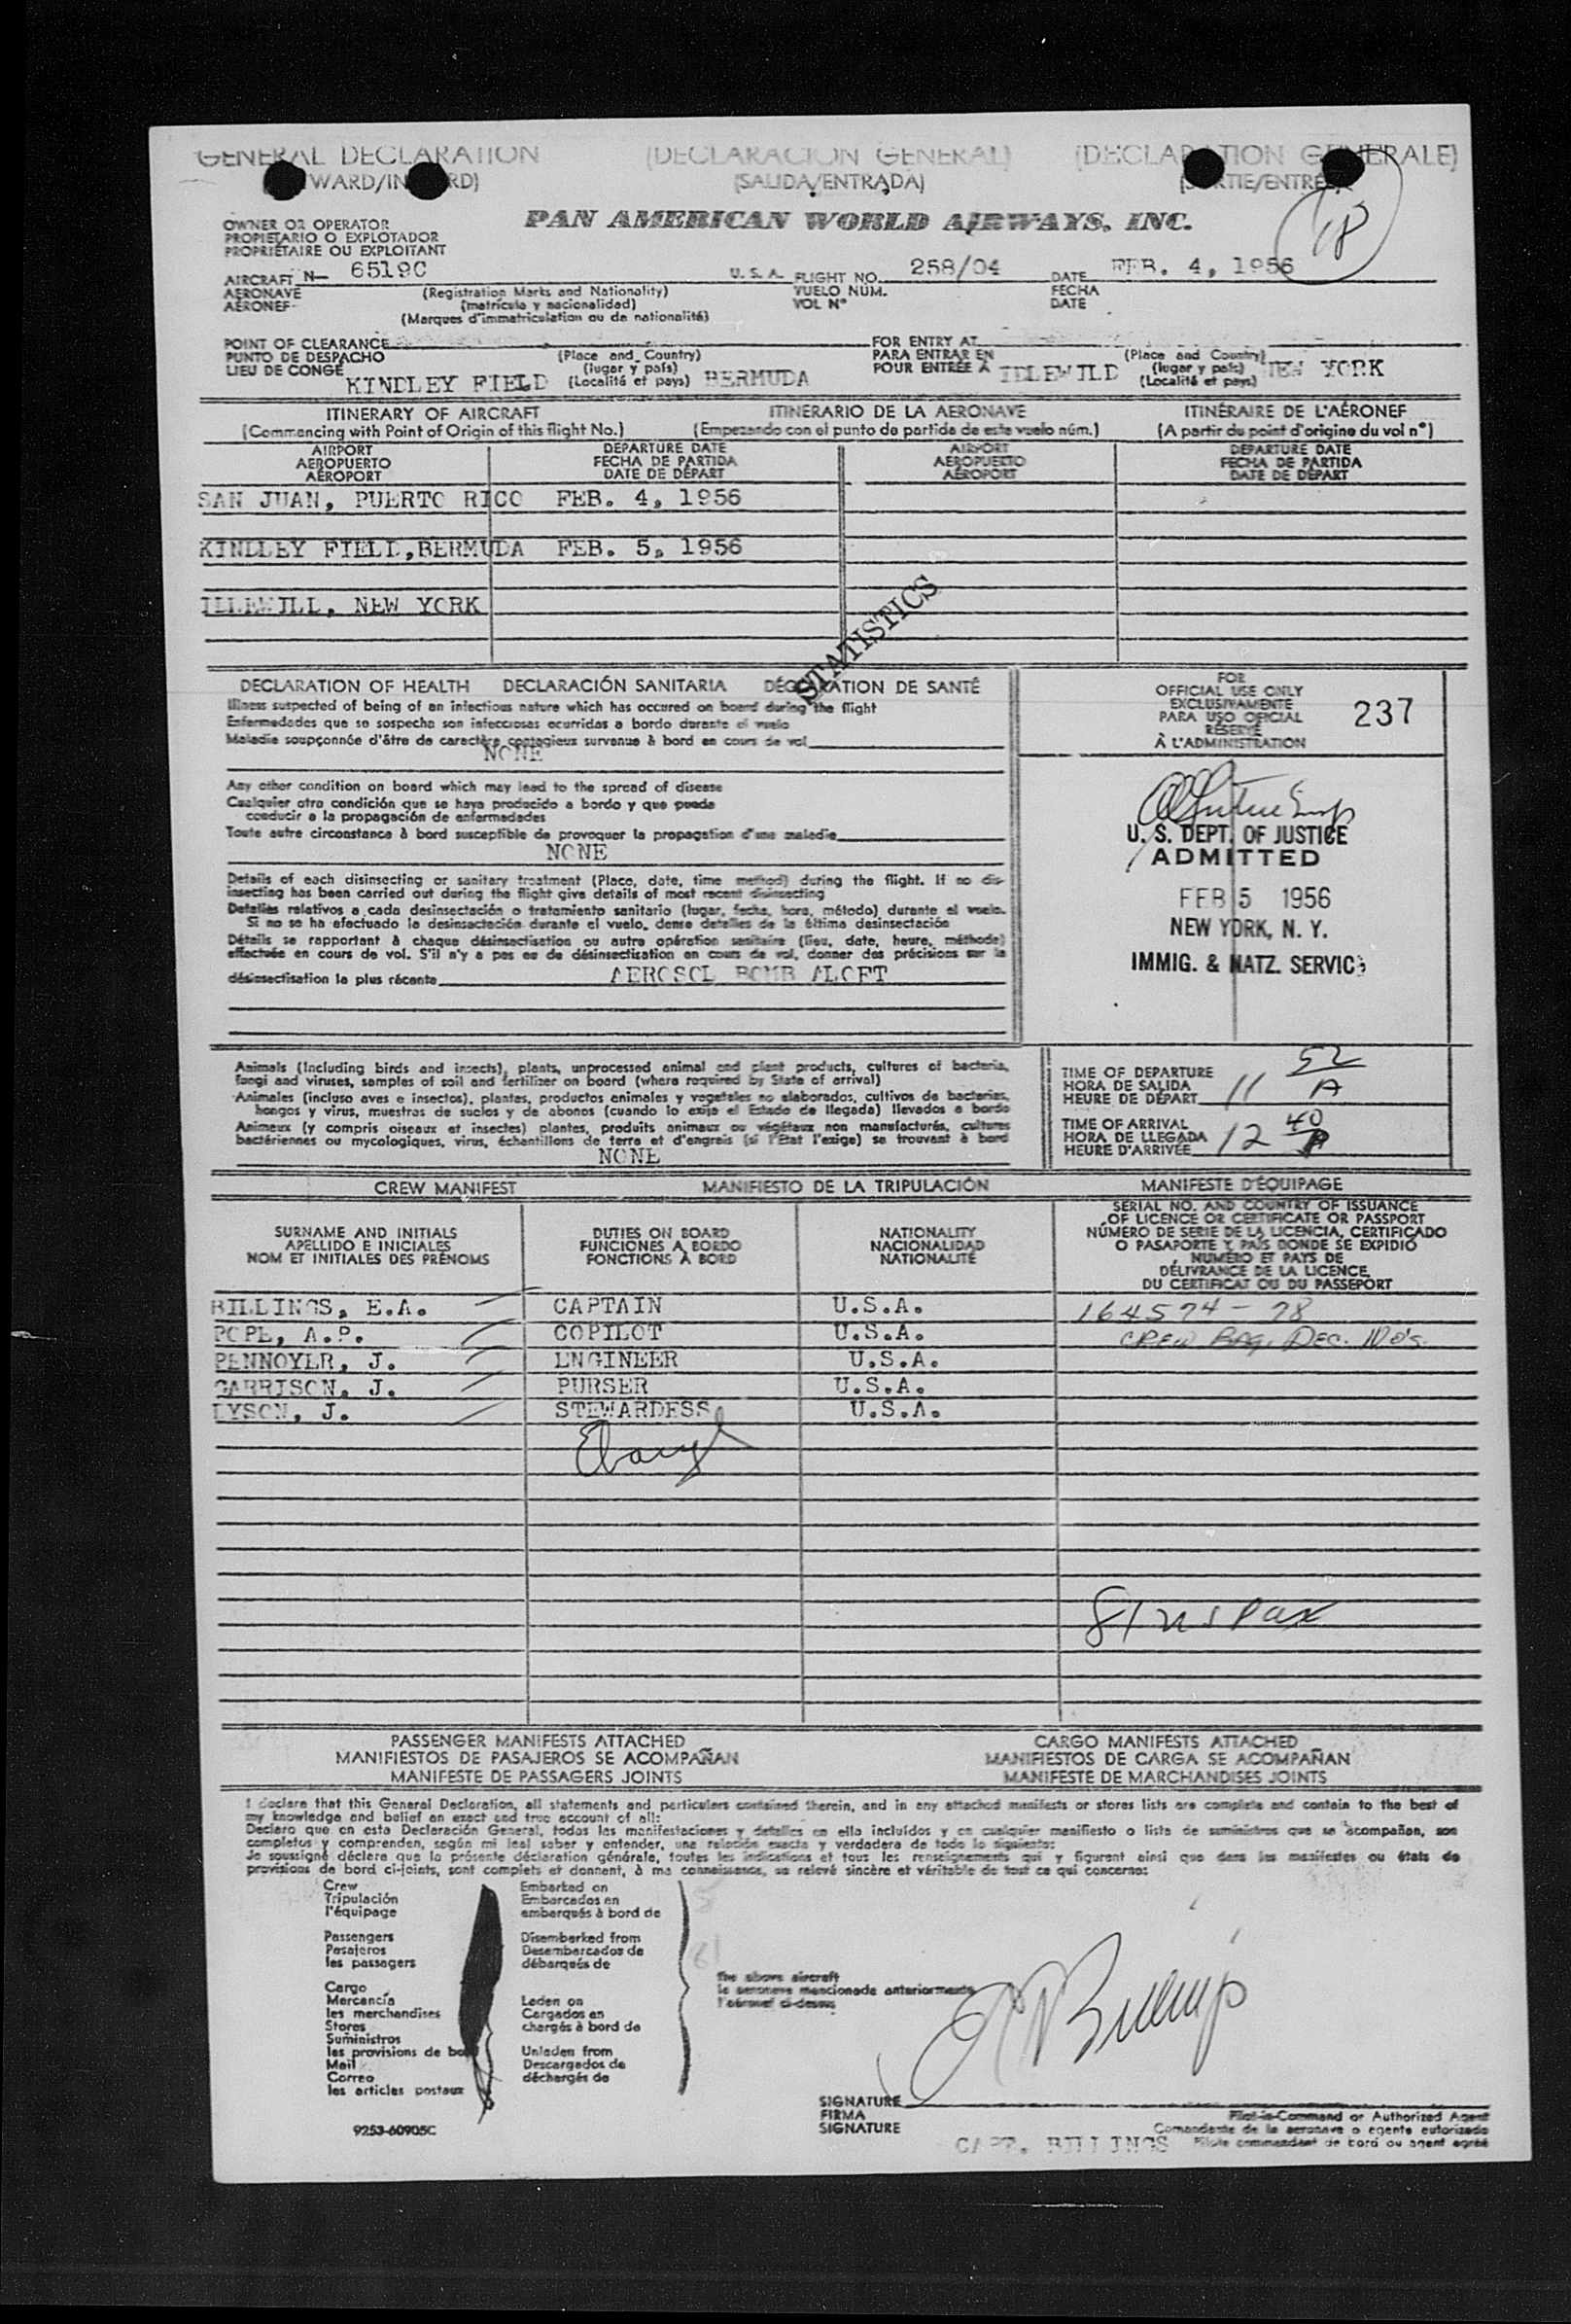 GENERAL DECLARATION (DECLARACION GENERAL) (DECLARATION GENERALE)
(SALIDA/ENTRADA)
18
OWNER OR OPERATOR
PROPIETARIO O EXPLOTADOR
PROPRIÉTAIRE OU EXPLOITANT
PAN AMERICAN WORLD AIRWAYS, INC.
AIRCRAFT N— 6519C U. S. A. FLIGHT NO. 258/04 DATE FEB. 4, 1956
AERONAVE (Registration Marks and Nationality) VUELO NÚM. FECHA
AÉRONEF (matrícula y nacionalidad) VOL N° DATE
(Marques d'immatriculation ou de nationalité)
POINT OF CLEARANCE FOR ENTRY AT
PUNTO DE DESPACHO (Place and Country) PARA ENTRAR EN (Place and Country)
LIEU DE CONGÉ (lugar y país) POUR ENTRÉE A (lugar y país)
KINDLEY FIELD (Localité et pays) BERMUDA IDLEWILD (Localité et pays) NEW YORK
ITINERARY OF AIRCRAFT ITINERARIO DE LA AERONAVE ITINÉRAIRE DE L'AÉRONEF
(Commencing with Point of Origin of this flight No.) (Empezando con el punto de partida de este vuelo núm.) (A partir du point d'origine du vol n°)
AIRPORT DEPARTURE DATE AIRPORT DEPARTURE DATE
AEROPUERTO FECHA DE PARTIDA AEROPUERTO FECHA DE PARTIDA
AÉROPORT DATE DE DÉPART AÉROPORT DATE DE DÉPART
SAN JUAN, PUERTO RICO FEB. 4, 1956
KINDLEY FIELD, BERMUDA FEB. 5, 1956
IDLEWILD, NEW YORK
STATISTICS
DECLARATION OF HEALTH DECLARACIÓN SANITARIA DÉCLARATION DE SANTÉ
Illness suspected of being of an infectious nature which has occured on board during the flight
Enfermedades que se sospecha son infecciosas ocurridas a bordo durante el vuelo
Maladie soupçonnée d'être de caractère contagieux survenue à bord en cours de vol
NONE
Any other condition on board which may lead to the spread of disease
Cualquier otra condición que se haya producido a bordo y que pueda
conducir a la propagación de enfermedades
Toute autre circonstance à bord susceptible de provoquer la propagation d'une maladie
NONE
Details of each disinsecting or sanitary treatment (Place, date, time method) during the flight. If no dis-
insecting has been carried out during the flight give details of most recent disinsecting
Detalles relativos a cada desinsectación o tratamiento sanitario (lugar, fecha, hora, método) durante el vuelo.
Si no se ha efectuado la desinsectación durante el vuelo, dense detalles de la última desinsectación
Détails se rapportant à chaque désinsectisation ou autre opération sanitaire (lieu, date, heure, méthode)
effectuée en cours de vol. S'il n'y a pas eu de désinsectisation en cours de vol, donner des précisions sur la
désinsectisation la plus récente AEROSOL BOMB ALOFT
FOR
OFFICIAL USE ONLY
EXCLUSIVAMENTE
PARA USO OFICIAL
RÉSERVÉ
À L'ADMINISTRATION
237
U. S. DEPT. OF JUSTICE
ADMITTED
FEB 5 1956
NEW YORK, N. Y.
IMMIG. & NATZ. SERVICE
Animals (Including birds and insects), plants, unprocessed animal and plant products, cultures of bacteria,
fungi and viruses, samples of soil and fertilizer on board (where required by State of arrival)
Animales (incluso aves e insectos), plantas, productos animales y vegetales no elaborados, cultivos de bacterias,
hongos y virus, muestras de suelos y de abonos (cuando lo exija el Estado de llegada) llevados a bordo
Animaux (y compris oiseaux et insectes) plantes, produits animaux ou végétaux non manufacturés, cultures
bactériennes ou mycologiques, virus, échantillons de terre et d'engrais (si l'Etat l'exige) se trouvant à bord
NONE
TIME OF DEPARTURE
HORA DE SALIDA
HEURE DE DÉPART 11 52 A
TIME OF ARRIVAL
HORA DE LLEGADA
HEURE D'ARRIVÉE 12 40
CREW MANIFEST MANIFIESTO DE LA TRIPULACIÓN MANIFESTE D'ÉQUIPAGE
SURNAME AND INITIALS
APELLIDO E INICIALES
NOM ET INITIALES DES PRÉNOMS
DUTIES ON BOARD
FUNCIONES A BORDO
FONCTIONS À BORD
NATIONALITY
NACIONALIDAD
NATIONALITÉ
SERIAL NO. AND COUNTRY OF ISSUANCE
OF LICENCE OR CERTIFICATE OR PASSPORT
NÚMERO DE SERIE DE LA LICENCIA, CERTIFICADO
O PASAPORTE Y PAÍS DONDE SE EXPIDIÓ
NUMÉRO ET PAYS DE
DÉLIVRANCE DE LA LICENCE
DU CERTIFICAT OU DU PASSEPORT
BILLINGS, E.A. CAPTAIN U.S.A. 164574 - 78
POPE, A.P. COPILOT U.S.A. CREW BAG. DEC. NO's.
PENNOYER, J. ENGINEER U.S.A.
GARRISON, J. PURSER U.S.A.
TYSON, J. STEWARDESS U.S.A.
PASSENGER MANIFESTS ATTACHED CARGO MANIFESTS ATTACHED
MANIFIESTOS DE PASAJEROS SE ACOMPAÑAN MANIFIESTOS DE CARGA SE ACOMPAÑAN
MANIFESTE DE PASSAGERS JOINTS MANIFESTE DE MARCHANDISES JOINTS
I declare that this General Declaration, all statements and particulars contained therein, and in any attached manifests or stores lists are complete and contain to the best of
my knowledge and belief an exact and true account of all:
Declaro que en esta Declaración General, todas las manifestaciones y detalles en ella incluidos y en cualquier manifiesto o lista de suministros que se acompañan, son
completos y comprenden, según mi leal saber y entender, una relación exacta y verdadera de todo lo siguiente:
Je soussigné déclare que la présente déclaration générale, toutes les indications et tous les renseignements qui y figurent ainsi que dans les manifestes ou états de
provisions de bord ci-joints, sont complets et donnent, à ma connaissance, un relevé sincère et véritable de tout ce qui concerne:
Crew Embarked on
Tripulación Embarcados en
l'équipage embarqués à bord de
Passengers Disembarked from
Pasajeros Desembarcados de
les passagers débarqués de
Cargo
Mercancía Laden on
les marchandises Cargados en
Stores chargés à bord de
Suministros
les provisions de bord Unladen from
Mail Descargados de
Correo déchargés de
les articles postaux
The above aircraft
la aeronave mencionada anteriormente
l'aéronef ci-dessus
SIGNATURE
FIRMA
SIGNATURE
Pilot-in-Command or Authorized Agent
Comandante de la aeronave o agente autorizado
Pilote commandant de bord ou agent agréé
CAPT. BILLINGS
9253-60905C